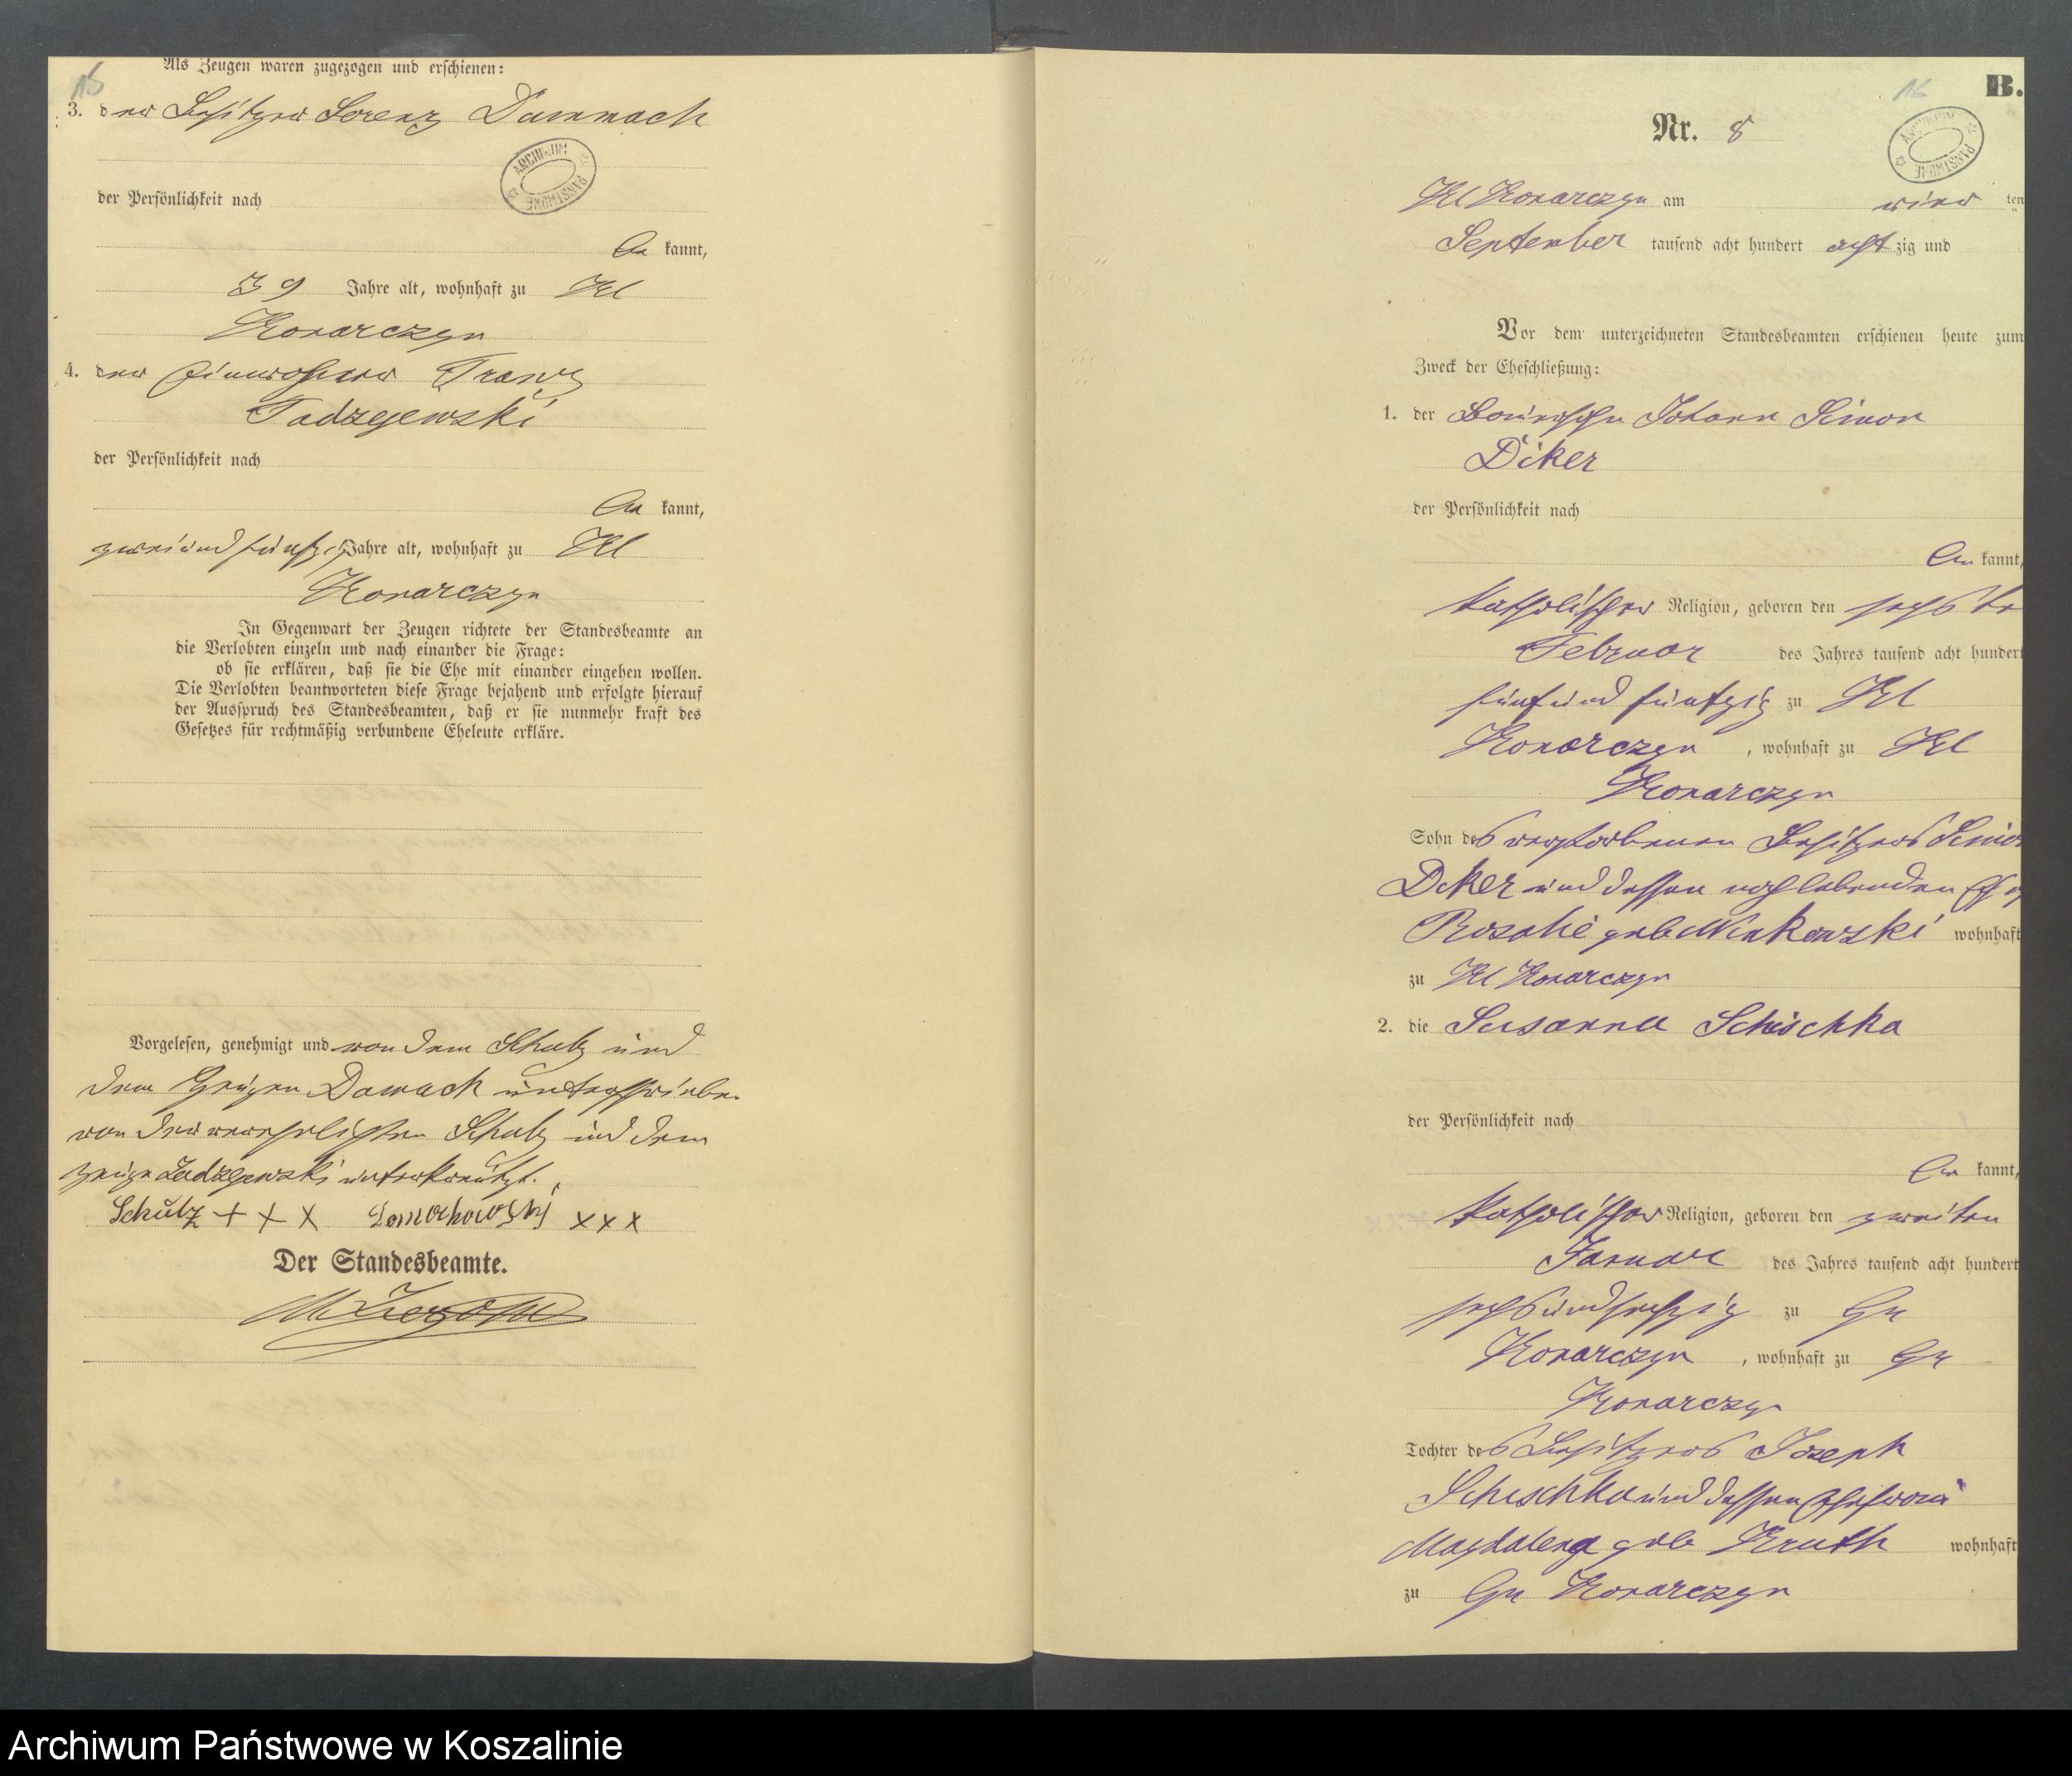 Als Zeugen waren zugezogen und erschienen:
3. der Besitzer Lorenz Dammach
ARCHIWUM PAŃSTWOWE
der Persönlichkeit nach
be kannt,
39 Jahre alt, wohnhaft zu Kl
Konarczyn
4. der Einwohner Franz
Tadzejewski
der Persönlichkeit nach
be kannt,
zweiundfünfzig Jahre alt, wohnhaft zu Kl
Konarczyn
In Gegenwart der Zeugen richtete der Standesbeamte an
die Verlobten einzeln und nach einander die Frage:
ob sie erklären, daß sie die Ehe mit einander eingehen wollen.
Die Verlobten beantworteten diese Frage bejahend und erfolgte hierauf
der Ausspruch des Standesbeamten, daß er sie nunmehr kraft des
Gesetzes für rechtmäßig verbundene Eheleute erkläre.
Vorgelesen, genehmigt und von dem Schulz und
dem Zeugen Damach unterschrieben
von der verehelichten Schulz und dem
Zeuge Tadzejewski unterkreuzt.
Schulz + + x x x x
Der Standesbeamte.
B.
16
Nr. 8
ARCHIWUM PAŃSTWOWE
Kl Konarczyn am vier ten
September tausend acht hundert acht zig und
Vor dem unterzeichneten Standesbeamten erschienen heute zum
Zweck der Eheschließung:
1. der Johann Simon
Diker
der Persönlichkeit nach
be kannt,
katholischer Religion, geboren den sechs te
Februar des Jahres tausend acht hundert
fünfundfünfzig zu Kl
Konarczyn, wohnhaft zu Kl
Konarczyn
Sohn des verstorbenen Besitzers Simo
Diker und dessen noch lebenden
Rosalie geb Winkowski wohnhaft
zu Kl Konarczyn
2. die Susanna Schischka
der Persönlichkeit nach
be kannt,
katholischer Religion, geboren den zweiten
Januar des Jahres tausend acht hundert
sechsundsechzig zu Gr
Konarczyn, wohnhaft zu Gr
Konarczyn
Tochter des Besitzers Joseph
Schischka und dessen Ehefrau
Magdalena geb Kruth wohnhaft
zu Gr Konarczyn
Archiwum Państwowe w Koszalinie